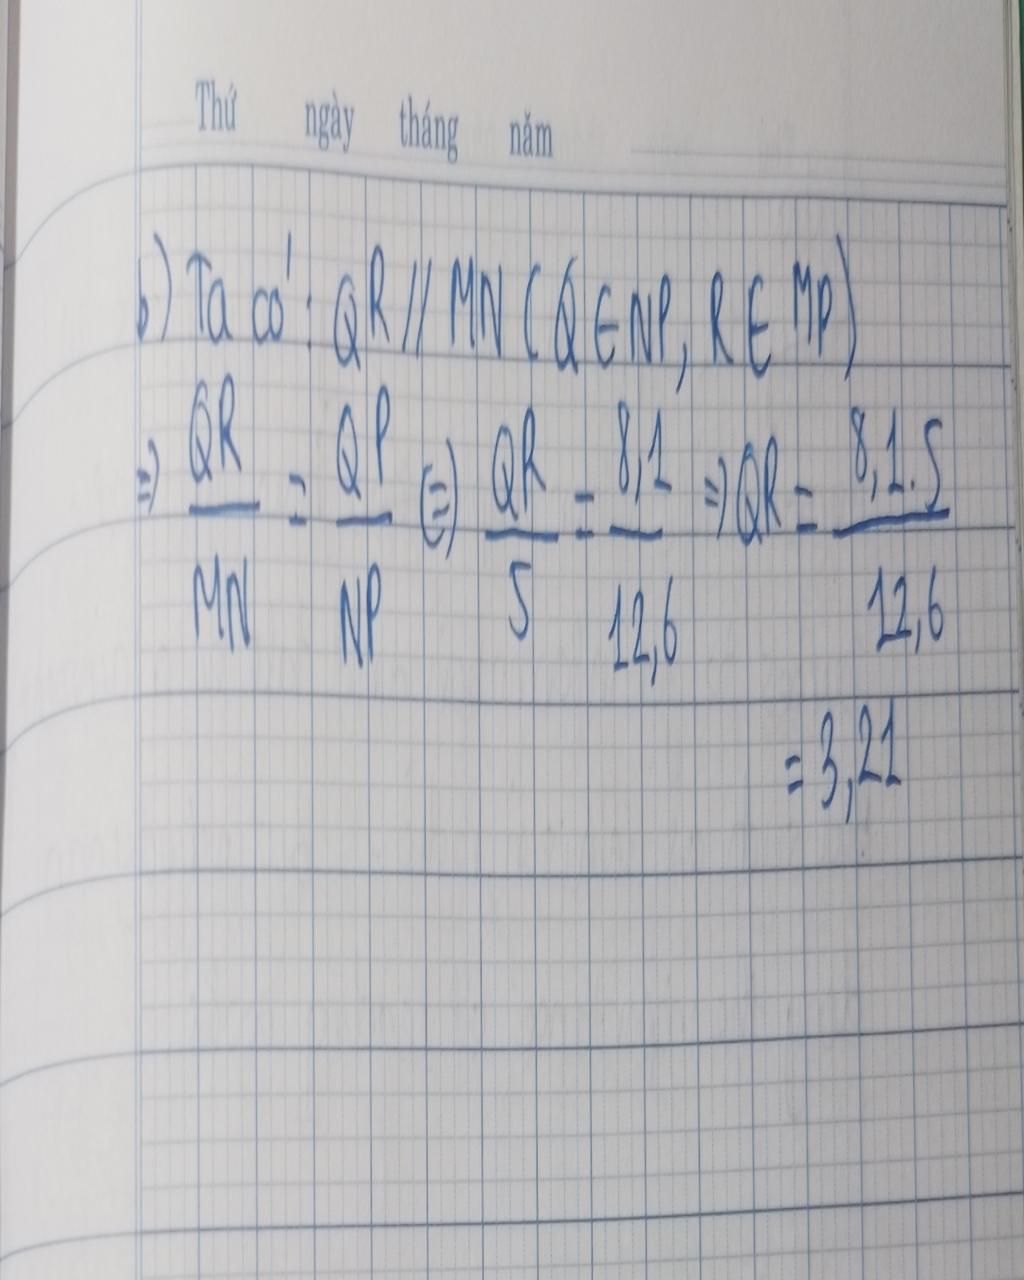 Thứ ngày tháng năm
b) Ta có: QR // MN (Q ∈ NP, R ∈ MP)
⇒ QR/MN = QP/NP ⇔ QR/5 = 8,1/12,6 ⇒ QR = 8,1.5/12,6
= 3,21